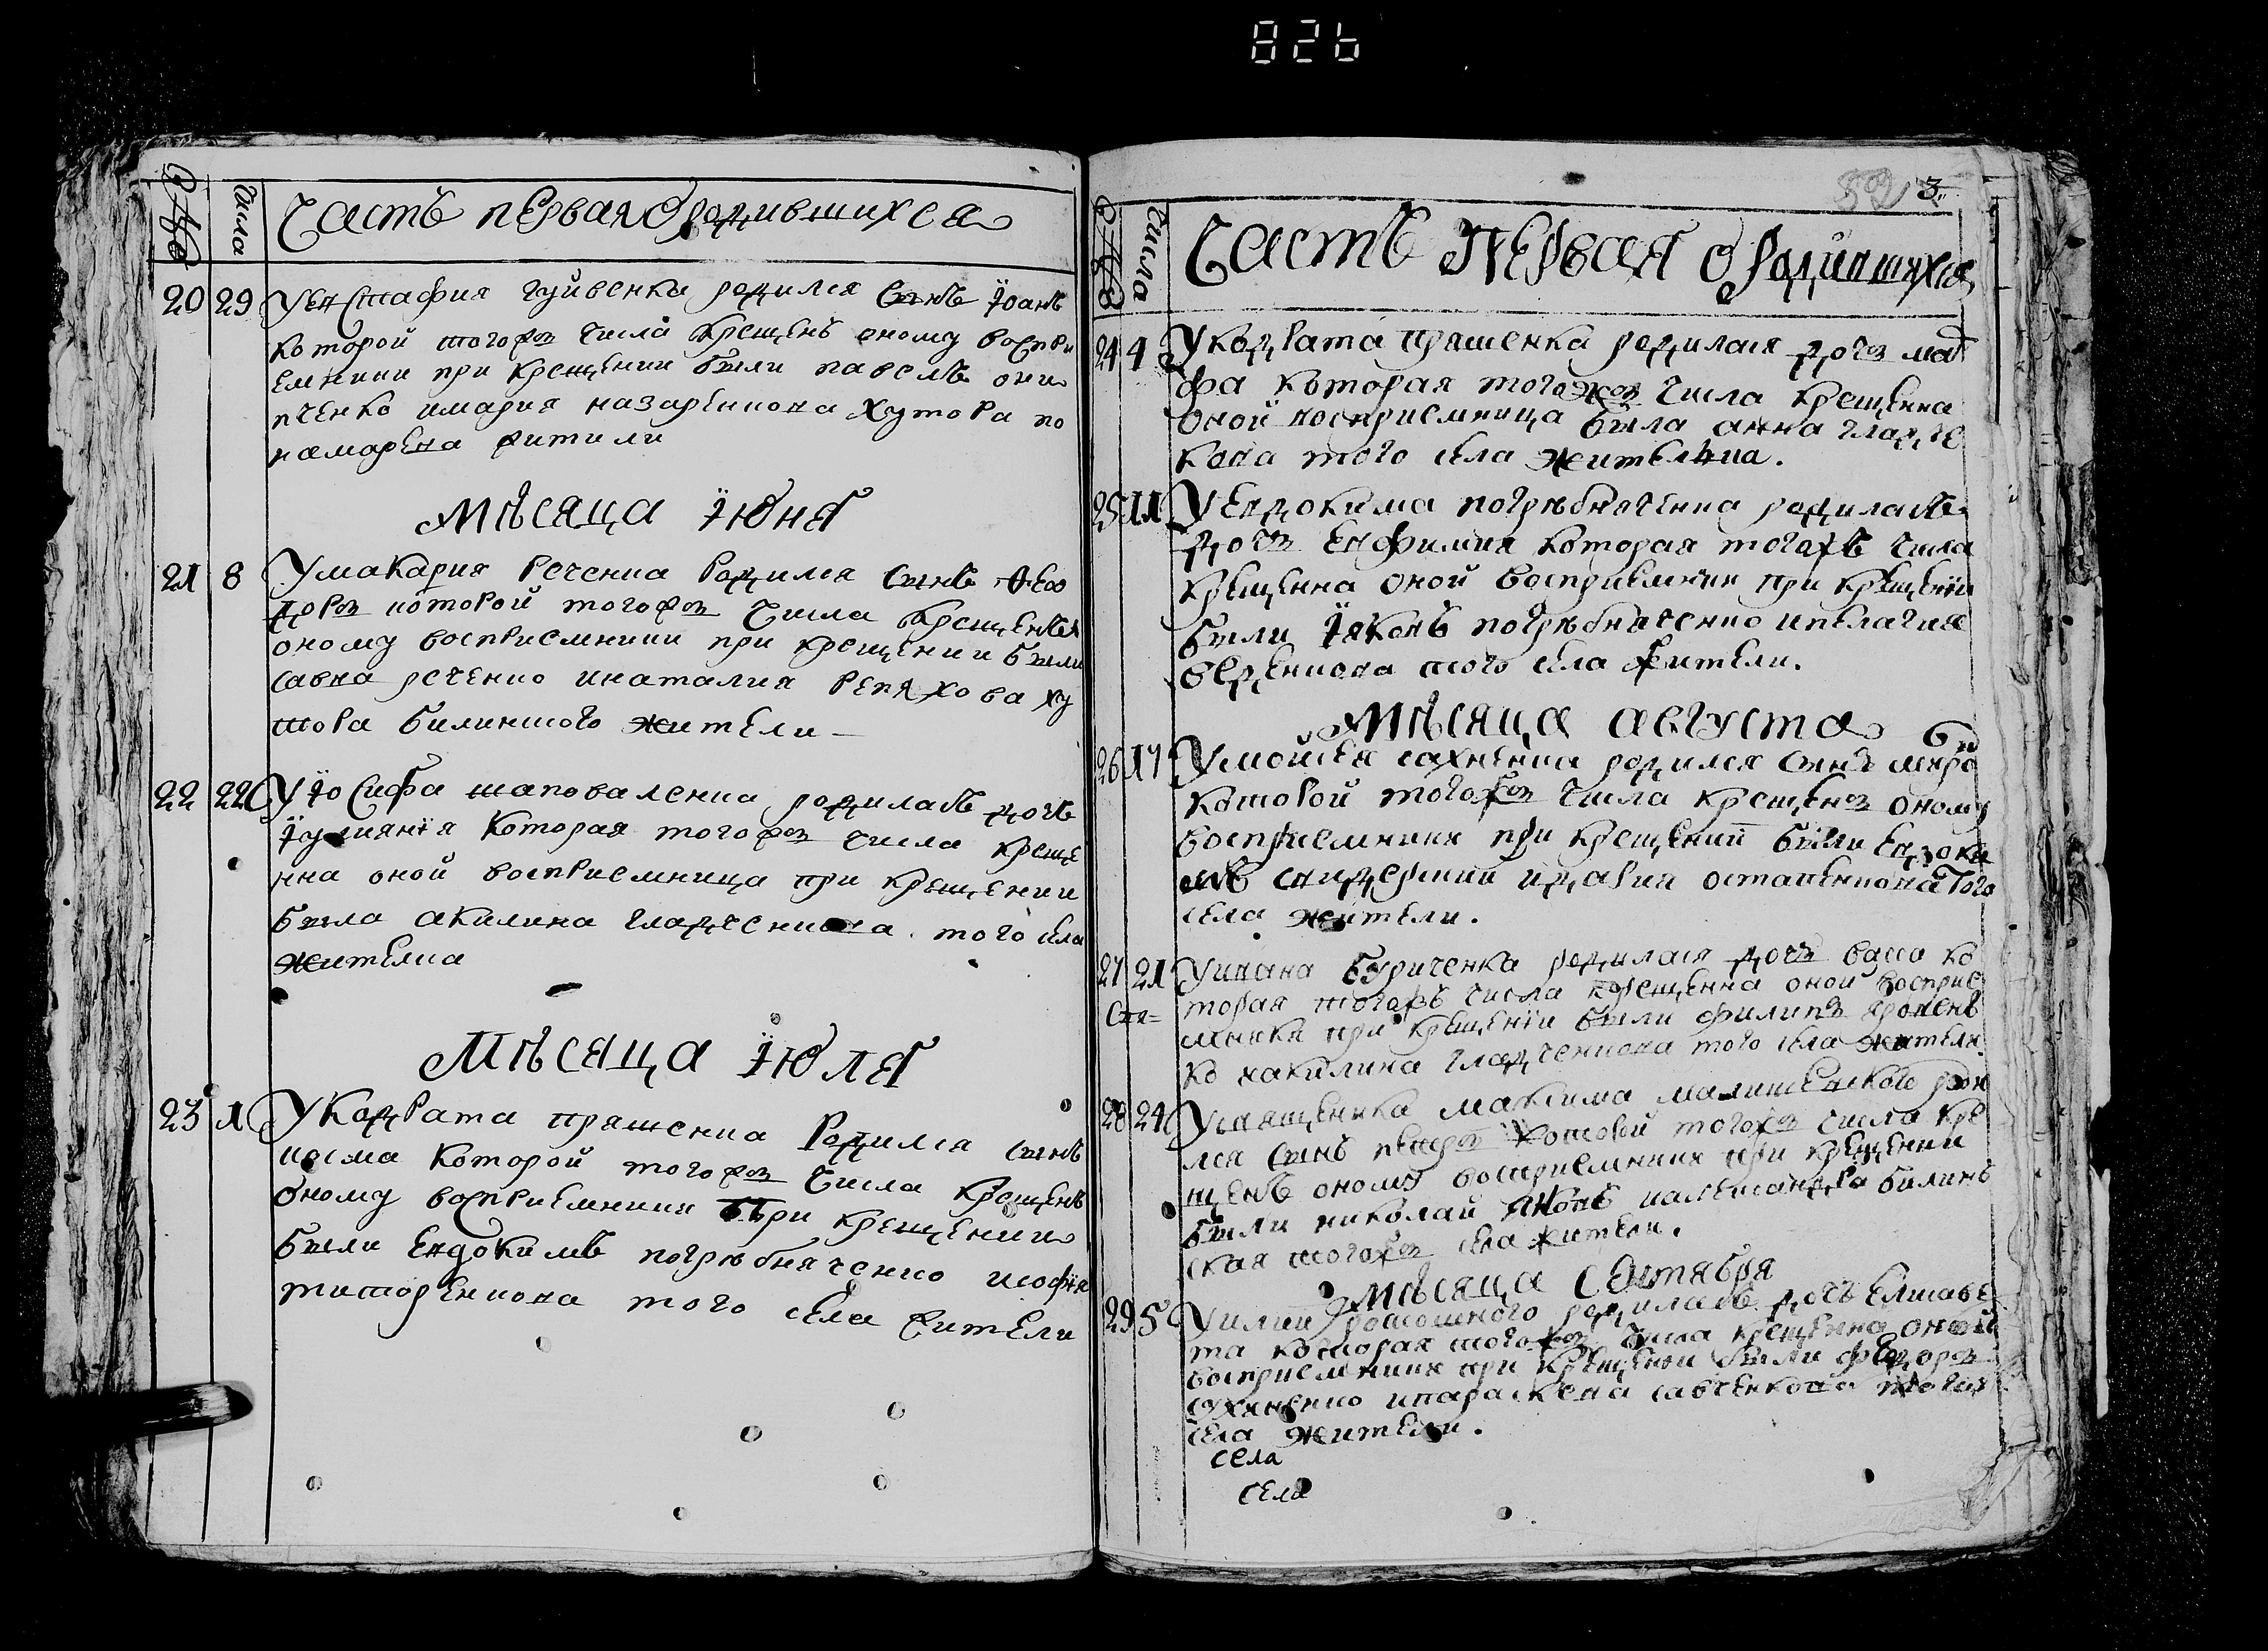 826
Числа
Часть первая о родившихся
20 29 У Евстафия гуйвенка родился сынъ Їоанъ
которой тогожъ числа крещенъ оному воспри
емники при крещении были павелъ они
пченко и мария назаренкова хутора по
намарева жители
Мѣсяца Їюня
21 8 У макария реченка родился сынъ Ѳео
доръ которой тогожъ числа крещенъ
оному восприемники при крещении были
савва реченко и наталия репяхова ху
тора билинского жители
22 22 У Їосифа шаповаленка родилась дочь
Їулиянїя которая тогожъ числа креще
нна оной восприемница при крещении
была акилина гладченкова того села
жителка
Мѣсяца Їюля
23 1 У Кодрата пряшенка родился сынъ
косма которой тогожъ числа крещенъ
оному восприемники при крещении
были Евдокимъ погрѣбняченко и софия
титоренкова того села жители
3
Числа
Часть первая о родившихся
24 4 У кодрата пряшенка родилася дочъ мар
фа которая тогожъ числа крещенна
оной восприемница была анна гладче
кова того села жителка.
25 11 У Евдокима погрѣбняченка родилась
дочъ Евфимия которая тогожъ числа
крещенна оной восприемники при крещенїи
были Їяковъ погрѣбняченко и пелагия
того села жители.
Мѣсяца августа
26 17 У мойсея сахненка родился сынъ
которой тогожъ числа крещенъ оному
восприемники при крещении были Евдоки
мъ и дария остапенкова того
села жители.
27 21 У ивана буриченка родилася дочъ васса ко
торая тогожъ числа крещенна оной восприе
мники при крещенїи были филипъ
ко и акилина гладченкова того села жители.
28 24 У священника максима малишевского роди
лся сынъ петръ которой тогожъ числа кре
щенъ оному восприемники при крещении
были николай яковъ и александра билинъ
ская тогожъ села жители.
Мѣсяца Септября
29 5 У илии родилась дочъ Елисаве
та которая тогожъ числа крещенна оной
восприемники при крещенїи были федоръ
сухненко и параскева савченкова тогожъ
села жители.
села
села